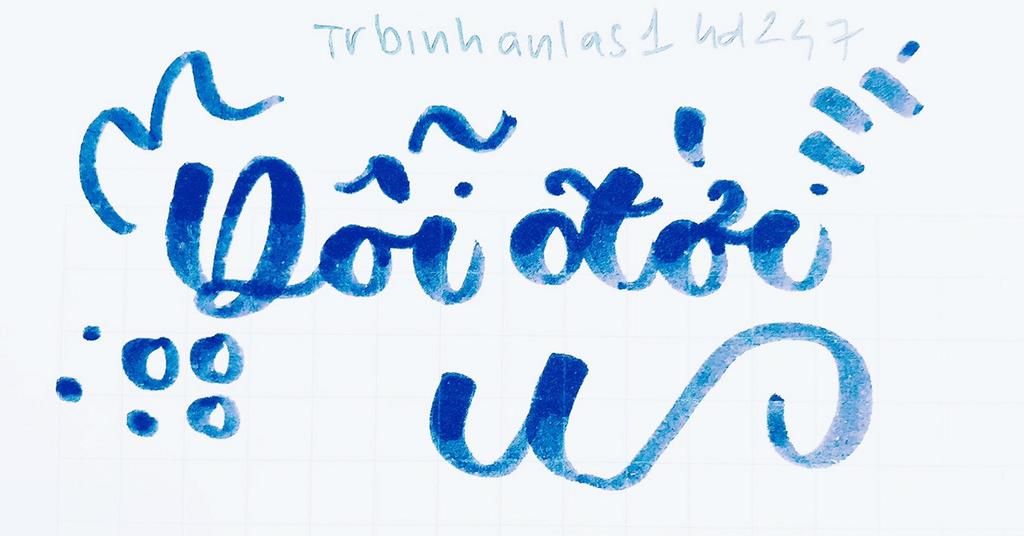 Trbinhanlas1 hd247
Dỗi
u